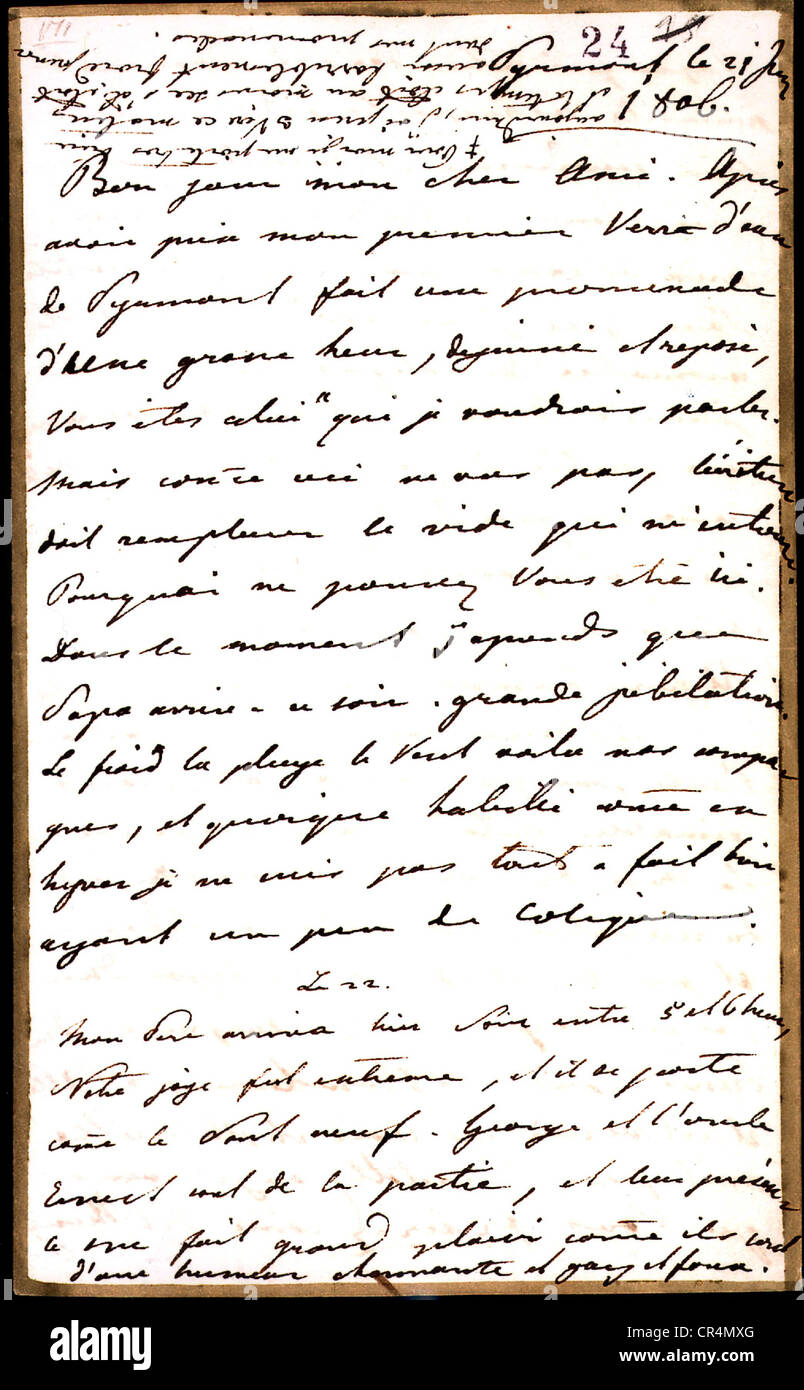 24
Pyrmont le 21 Juin
1806.
Bon jour mon cher Ami. Après
avoir pris mon premier Verre d'eau
de Pyrmont fait une promenade
d'une grane heur, dejeuné et reposé,
Vous étes celui a qui je voudrois parler.
Mais come ceci ne vas pas,
doit remplacer le vide qui m'entoure.
Pourquoi ne pouvez Vous etre ici.
Dans le moment j'aprends que
Papa arrive ce soir. grande jubilation.
Le froid la pluye le Vent voila nos compa-
gnes, et quoique habillé come en
hyver je ne suis pas tout a fait bien
ayant un peu de Colique.
Le 22.
Mon Pere arriva hier Soir entre 5 et 6 heur,
Notre joye fut extreme, et il se porte
come le Pont neuf. George et l'oncle
Ernest sont de la partie, et leur présen-
ce me fait grand plaisir come ils sont
d'une humeur charmante et gays et foux.
alamy
Image ID: CR4MXG
www.alamy.com